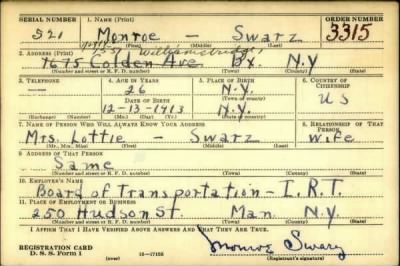 SERIAL NUMBER 1. NAME (Print) ORDER NUMBER
521 Monroe - Swarz 3315
(First) (Middle) (Last)
2. ADDRESS (Print) Williamsbridge
1675 Colden Ave Bx. N.Y
(Number and street or R. F. D. number) (Town) (County) (State)
3. TELEPHONE 4. AGE IN YEARS 5. PLACE OF BIRTH 6. COUNTRY OF CITIZENSHIP
26 N.Y.
DATE OF BIRTH (Town or county) U S
12-13-1913 N.Y.
(Exchange) (Number) (Mo.) (Day) (Yr.) (State or country)
7. NAME OF PERSON WHO WILL ALWAYS KNOW YOUR ADDRESS 8. RELATIONSHIP OF THAT PERSON
Mrs. Lottie - Swarz Wife
(Mr., Mrs., Miss) (First) (Middle) (Last)
9. ADDRESS OF THAT PERSON
Same
(Number and street or R. F. D. number) (Town) (County) (State)
10. EMPLOYER'S NAME
Board of Transportation - I.R.T.
11. PLACE OF EMPLOYMENT OR BUSINESS
250 Hudson St. Man. N.Y.
(Number and street or R. F. D. number) (Town) (County) (State)
I AFFIRM THAT I HAVE VERIFIED ABOVE ANSWERS AND THAT THEY ARE TRUE.
REGISTRATION CARD
D. S. S. Form 1 (over) 16-17105 Monroe Swarz
(Registrant's signature)